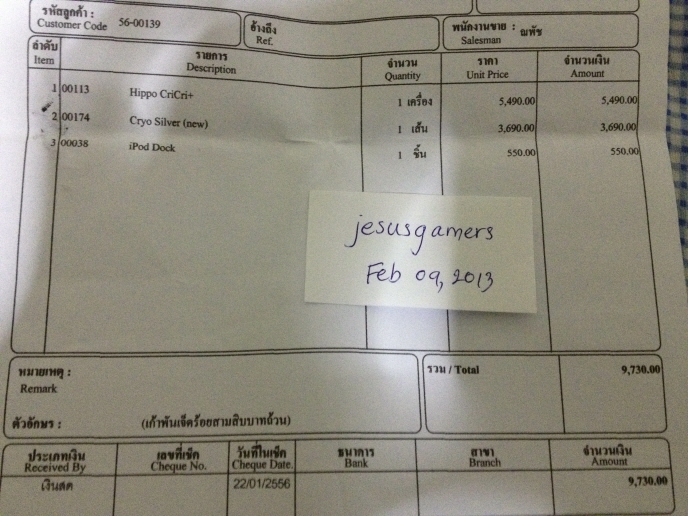 รหัสลูกค้า :
Customer Code 56-00139
อ้างถึง
Ref.
พนักงานขาย : ณทัช
Salesman
ลำดับ รายการ จำนวน ราคา จำนวนเงิน
Item Description Quantity Unit Price Amount
1 00113 Hippo CriCri+ 1 เครื่อง 5,490.00 5,490.00
2 00174 Cryo Silver (new) 1 เส้น 3,690.00 3,690.00
3 00038 iPod Dock 1 ชิ้น 550.00 550.00
jesusgamers
Feb 09, 2013
หมายเหตุ : รวม / Total 9,730.00
Remark
ตัวอักษร : (เก้าพันเจ็ดร้อยสามสิบบาทถ้วน)
ประเภทเงิน เลขที่เช็ค วันที่ในเช็ค ธนาคาร สาขา จำนวนเงิน
Received By Cheque No. Cheque Date. Bank Branch Amount
เงินสด 22/01/2556 9,730.00